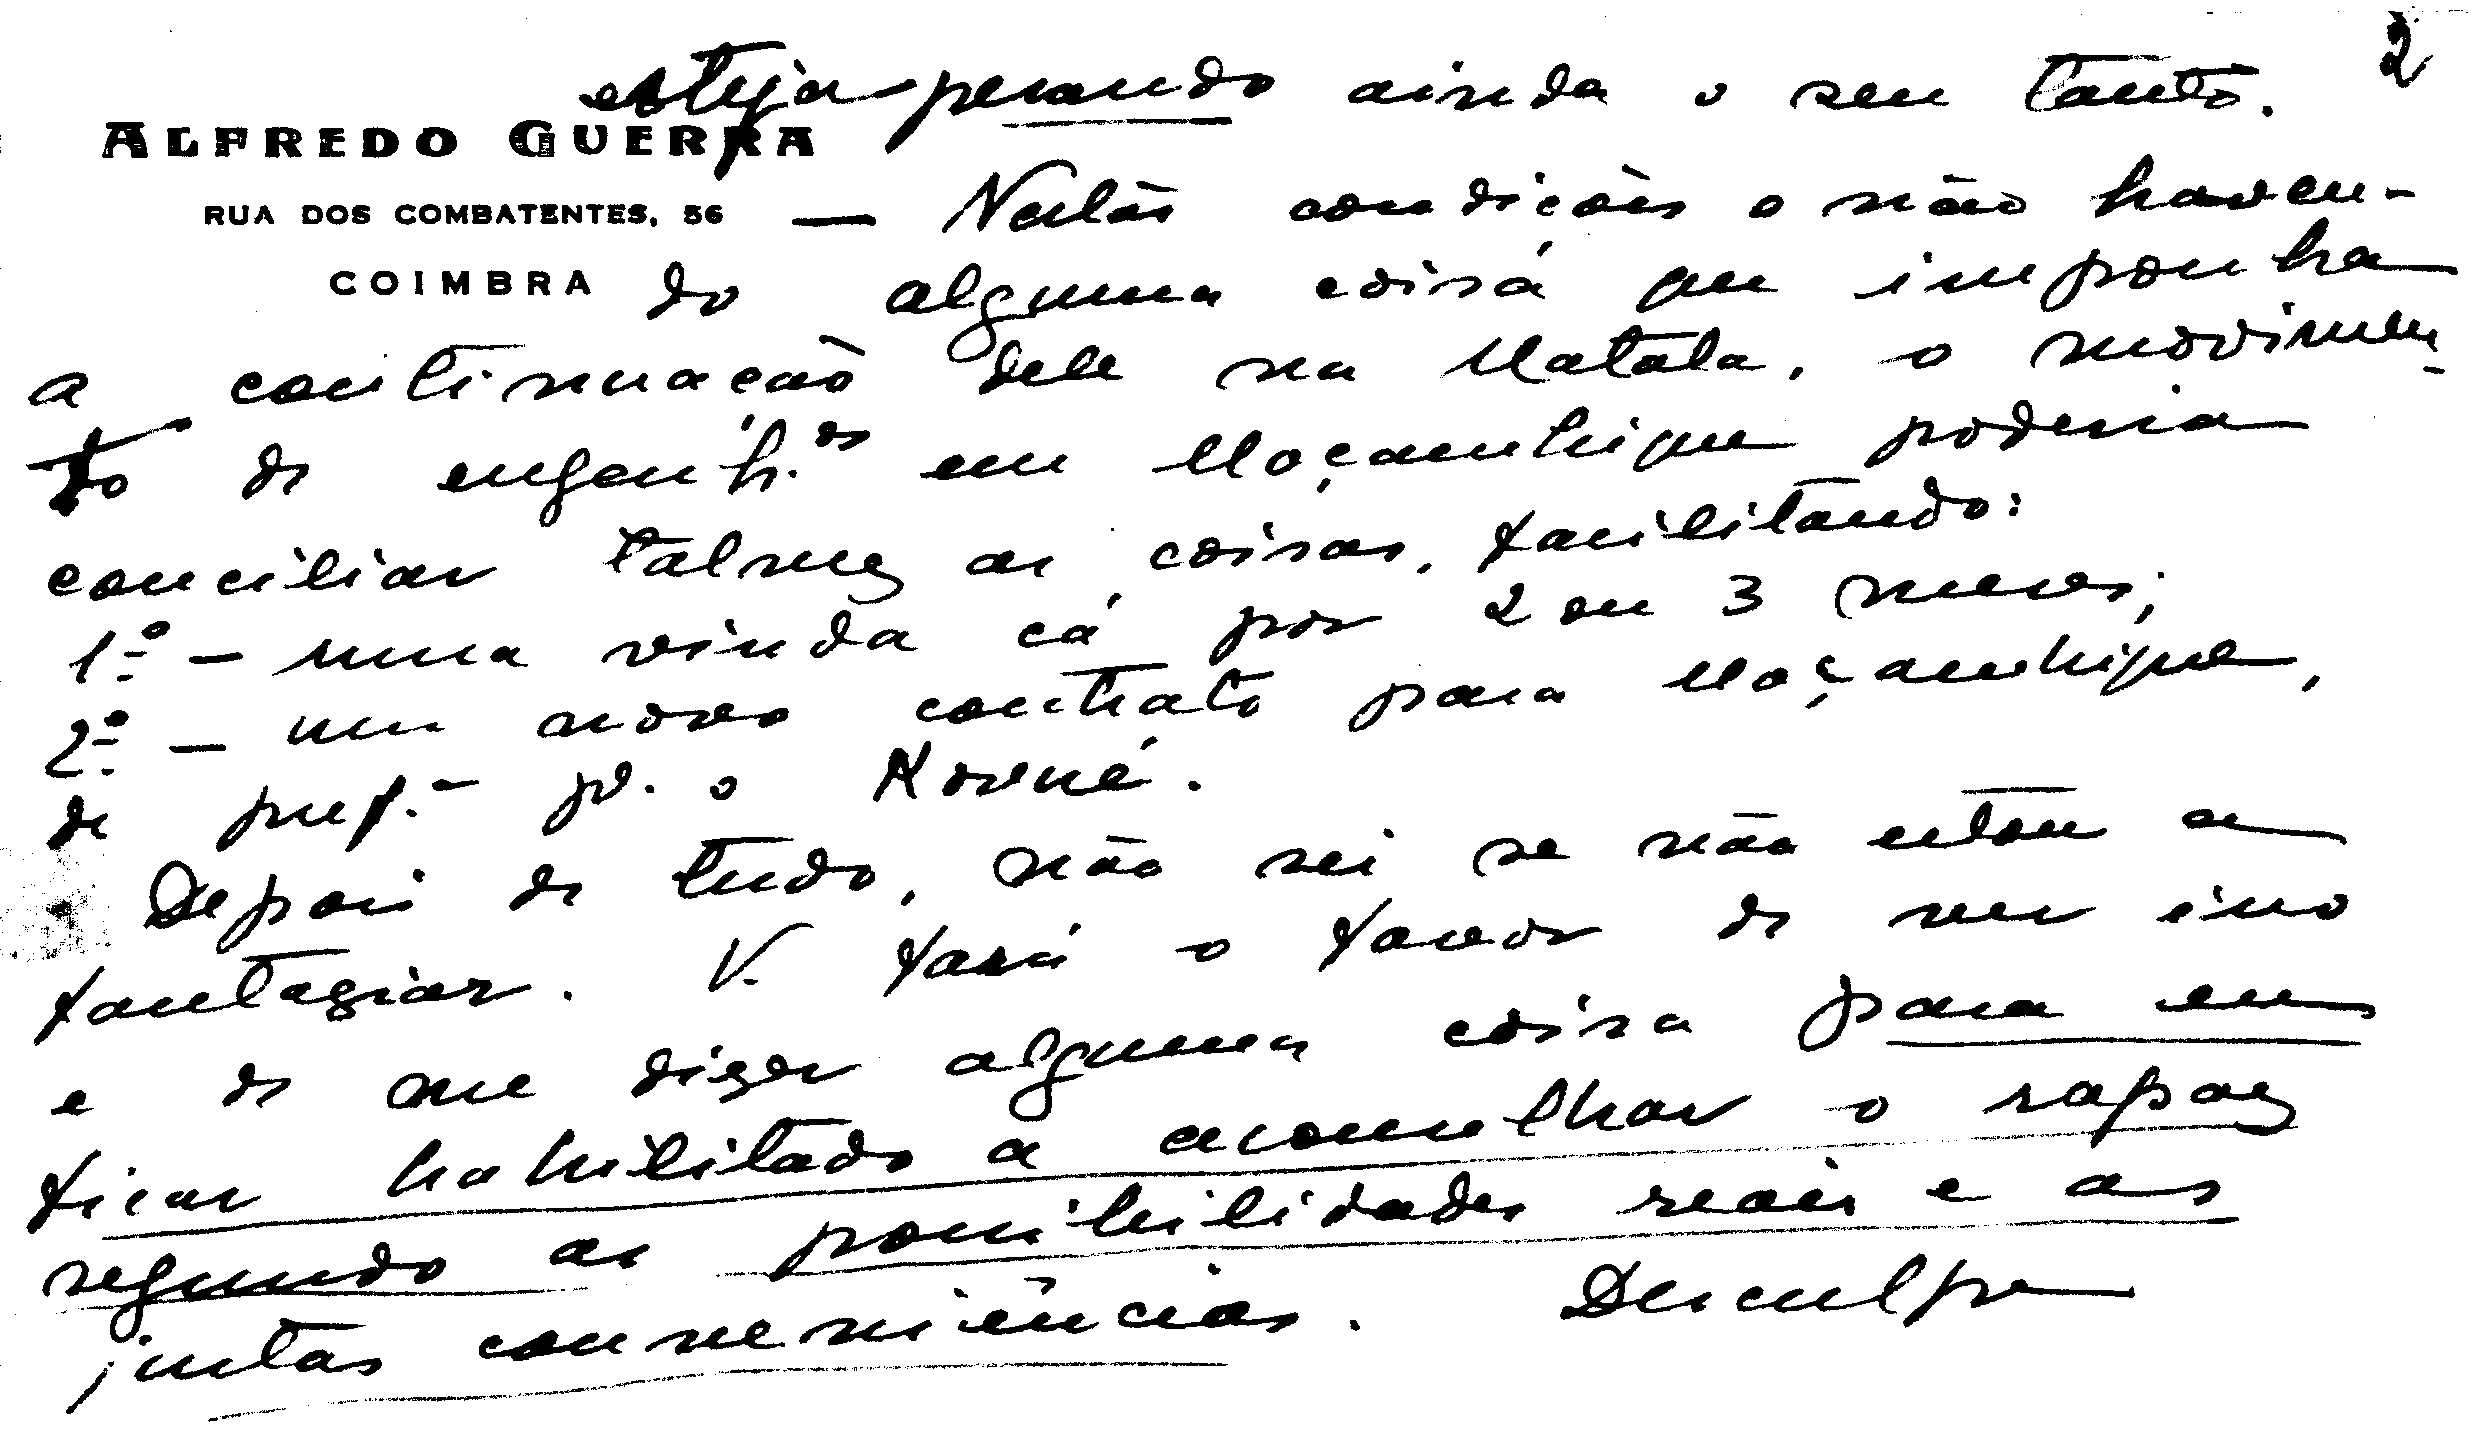 2
esteja pesando ainda o seu tanto.
ALFREDO GUERRA
RUA DOS COMBATENTES, 56
COIMBRA
— Nestas condições e não haven-
do alguma coisa que imponha
a continuação dele na Matala, o movimen-
to de engenh.os em Moçambique poderia
conciliar talvez as coisas, facilitando:
1.º – uma vinda cá por 2 ou 3 meses;
2.º – um novo contrato para Moçambique,
de pref.ª p.ª o
Depois de tudo, não sei se não estou a
fantasiar. V. fará o favor de ver isso
e de me dizer alguma coisa para eu
ficar habilitado a aconselhar o rapaz
segundo as possibilidades reais e as
justas conveniências. Desculpe